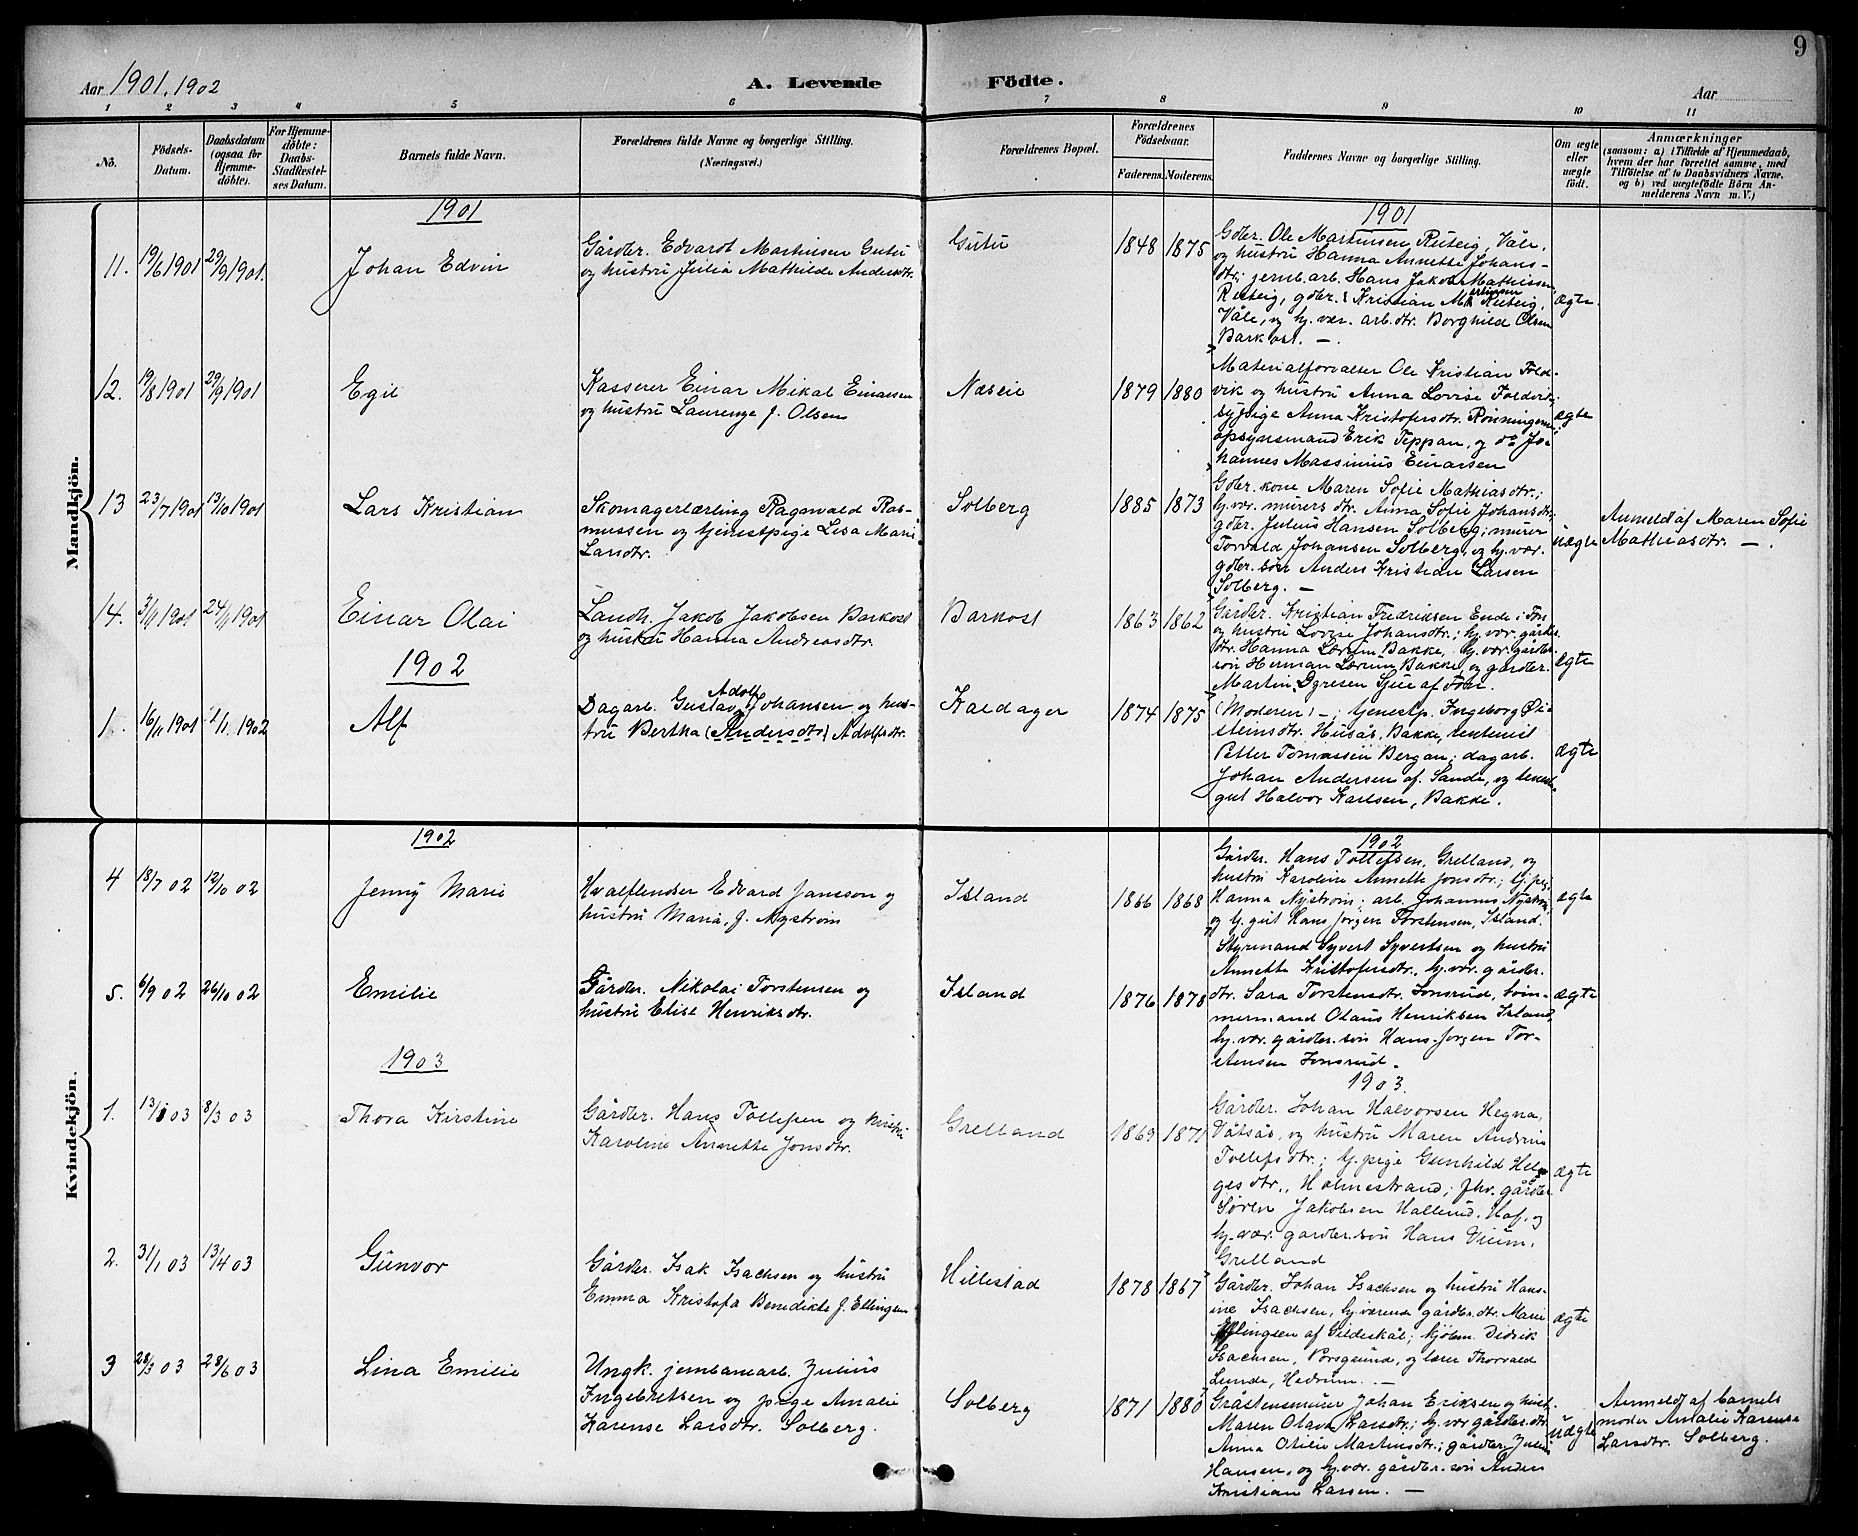 9
Aar 1901, 1902
A. Levende Födte.
Aar
1 2 3 4 5 6 7 8 9 10 11
No.
Födsels-Datum.
Daabsdatum (ogsaa for Hjemme-döbte).
For Hjemme-döbte: Daabs-Stadfæstel-ses Datum.
Barnets fulde Navn.
Forældrenes fulde Navne og borgerlige Stilling. (Næringsvei.)
Forældrenes Bopæl.
Forældrenes Födselsaar.
Faderens. Moderens.
Faddernes Navne og borgerlige Stilling.
Om ægte eller uægte födt.
Anmærkninger
(saasom: a) i Tilfælde af Hjemmedaab,
hvem der har forrettet samme, med
Tilföielse af to Daabsvidners Navne.
og b) ved uægtefödte Börn An-
melderens Navn m. V.)
Mandkjön.
1901
1901
11. 19/6 1901 29/9 1901. Johan Edvin
Gårdbr. Edvardt Martinsen Gutu
og hustru Julia Mathilde Andersdtr.
Gutu 1848 1875
Gdbr. Ole Martinsen, Reteig, Våle,
og hustru Hanna Annette Johans-
dtr; jernb.arb. Hans Jakob Mathissen
Reteig, gdbr. Kristian Martinsen Reteig,
Våle, og hj. vær. arb. dtr. Borghild Olsen
Barkost. —
ægte
12. 19/8 1901 29/9 1901 Egil
Kasserer Einar Mikal Einarsen
og hustru Laurenze f. Olsen
Næseie 1879 1880
Materialforvalter Ole Kristian Fold-
vik og hustru Anna Lovise
sypige Anna Kristofersdtr. Rönningen;
opsynsmand Erik Teppan, og do Jo-
hannes Massimius Einarsen
ægte
13 23/7 1901 13/10 1901 Lars Kristian
Skomagerlærling Ragnvald Ras-
mussen og tjenestpige Lisa Marie
Larsdtr.
Solberg 1885 1873
Gdbr. kone Maren Sofie Mathiasdtr.;
hj. vær. murers dtr. Anna Sofie Johansdtr;
gdbr. Julius Hansen Solberg; murer
Torvald Johansen Solberg, og hj. vær.
gdbr. sön Anders Kristian Larsen
Solberg. —
uægte
Anmeldt af Maren Sofie
Mathiasdtr. —
14. 3/9 1901 24/11 1901 Einar Olai
Landh. Jakob Jakobsen Barkost
og hustru Hanna Andreasdtr.
Barkost 1863 1862
Gårdbr. Kristian Fredriksen Ende i
og hustru Lovise Johansdtr.; hj. vær. gårdbr.
dtr. Hanna Bakke, hj. vær. gårdbr.
sön Herman Bakke, og gårdbr.
Martin
ægte
1902
1. 16/11 1901 1/1 1902 Alf
Dagarb. Gustav Adolf Johansen og hus-
tru Bertha (Andersdtr) Adolfsdtr.
Kaldager 1874 1875
(Moderen) —; tjenestp. Ingeborg Öi-
steinsdtr. Husås, Bakke,
Petter Tomassen Bergan; dagarb.
Johan Andersen af Sande, og
gut Halvor Karlsen, Bakke.
ægte
Kvindekjön.
1902
1902
4 18/7 02 12/10 02 Jenny Marie
Hvalflenser Edvard Jansson og
hustru Maria, f. Nyström
Island 1866 1868
Gårdbr. Hans Tollefsen, Grelland, og
hustru Karoline Annette Jonsdtr; tj. pige
Hanna Nyström; arb. Johannes Nyström
og tj. gut Hans Jörgen Torstensen, Island.
ægte
5. 6/9 02 26/10 02 Emilie
Gårdbr. Nikolai Torstensen og
hustru Elise Henriksdtr.
Island 1876 1878
Styrmand Syvert Syvertsen og hustru
Annette Kristofersdtr., hj. vær. gårdbr.
dtr. Sara Torstensdtr. Jonsrud, töm-
mermand Olaus Henriksen Island,
hj. vær. gårdbr. sön Hans Jörgen Tor-
stensen Jonsrud.
ægte
1903
1903.
1. 13/1 03 8/3 03 Thora Kirstine
Gårdbr. Hans Tollefsen og hustru
Karoline Annette Jonsdtr.
Grelland 1869 1871
Gårdbr. Johan Halvorsen Hegna,
Våtsås, og hustru Maren Andrine
Tollefsdtr.; tj. pige Gunhild Hel-
gesdtr., Holmestrand; fhv. gårdbr
Sören Jakobsen Hallerud, Hof, og
hj. vær. gårdbr. sön Hans Vium,
Grelland
ægte
2. 31/1 03 13/4 03 Gunvor
Gårdbr. Isak Isachsen og hustru
Emma Kristofa Benedikte f. Ellingsen
Hillestad 1878 1867
Gårdbr. Johan Isachsen og hustru Hans-
ine Isachsen, hj. værende gårdbr. dtr. Marie
Ellingsen af Gildeskål; kjöbm. Didrik
Isachsen, Porsgrund, og lærer Thorvald
Lunde, Hedrum. —
ægte
3 28/3 03 28/6 03 Lina Emilie
Ungk. jernbanearb. Julius
Ingebretsen og pige Amalie
Karense Larsdtr. Solberg.
Solberg 1871 1880
Gråstensmurer Johan Eriksen og hust.
Maren Olava Larsdtr.; hj. vær gårdbr. dtr.
Anna Otilie Martinsdtr.; gårdbr Julius
Hansen, og hj. vær. gårdbr. sön Anders
Kristian Larsen. —
uægte
Anmeldt af barnets
moder Amalie Karense
Larsdtr. Solberg.